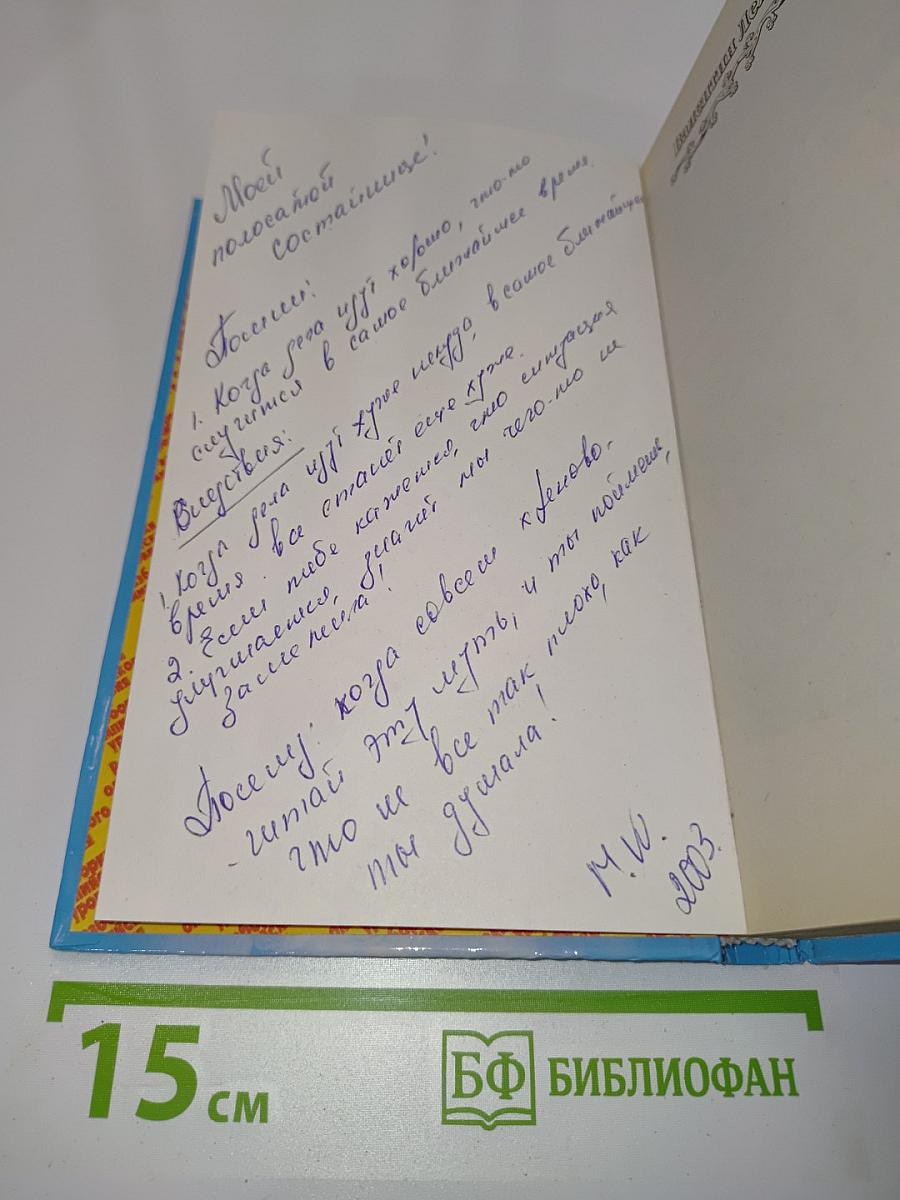 Моей
полосатой
состайнице!
Помни!
1. Когда дела идут хорошо, что-то
случится в самое ближайшее время.
Следствия:
1. Когда дела идут хуже некуда, в самое ближайшее
время все станет еще хуже.
2. Если тебе кажется, что ситуация
улучшается, значит ты чего-то не
заметила!
Посему: когда совсем хреново,
- читай эту муть, и ты поймешь,
что не все так плохо, как
ты думала!
М.Ю.
2003.
15 см
БФ БИБЛИОФАН